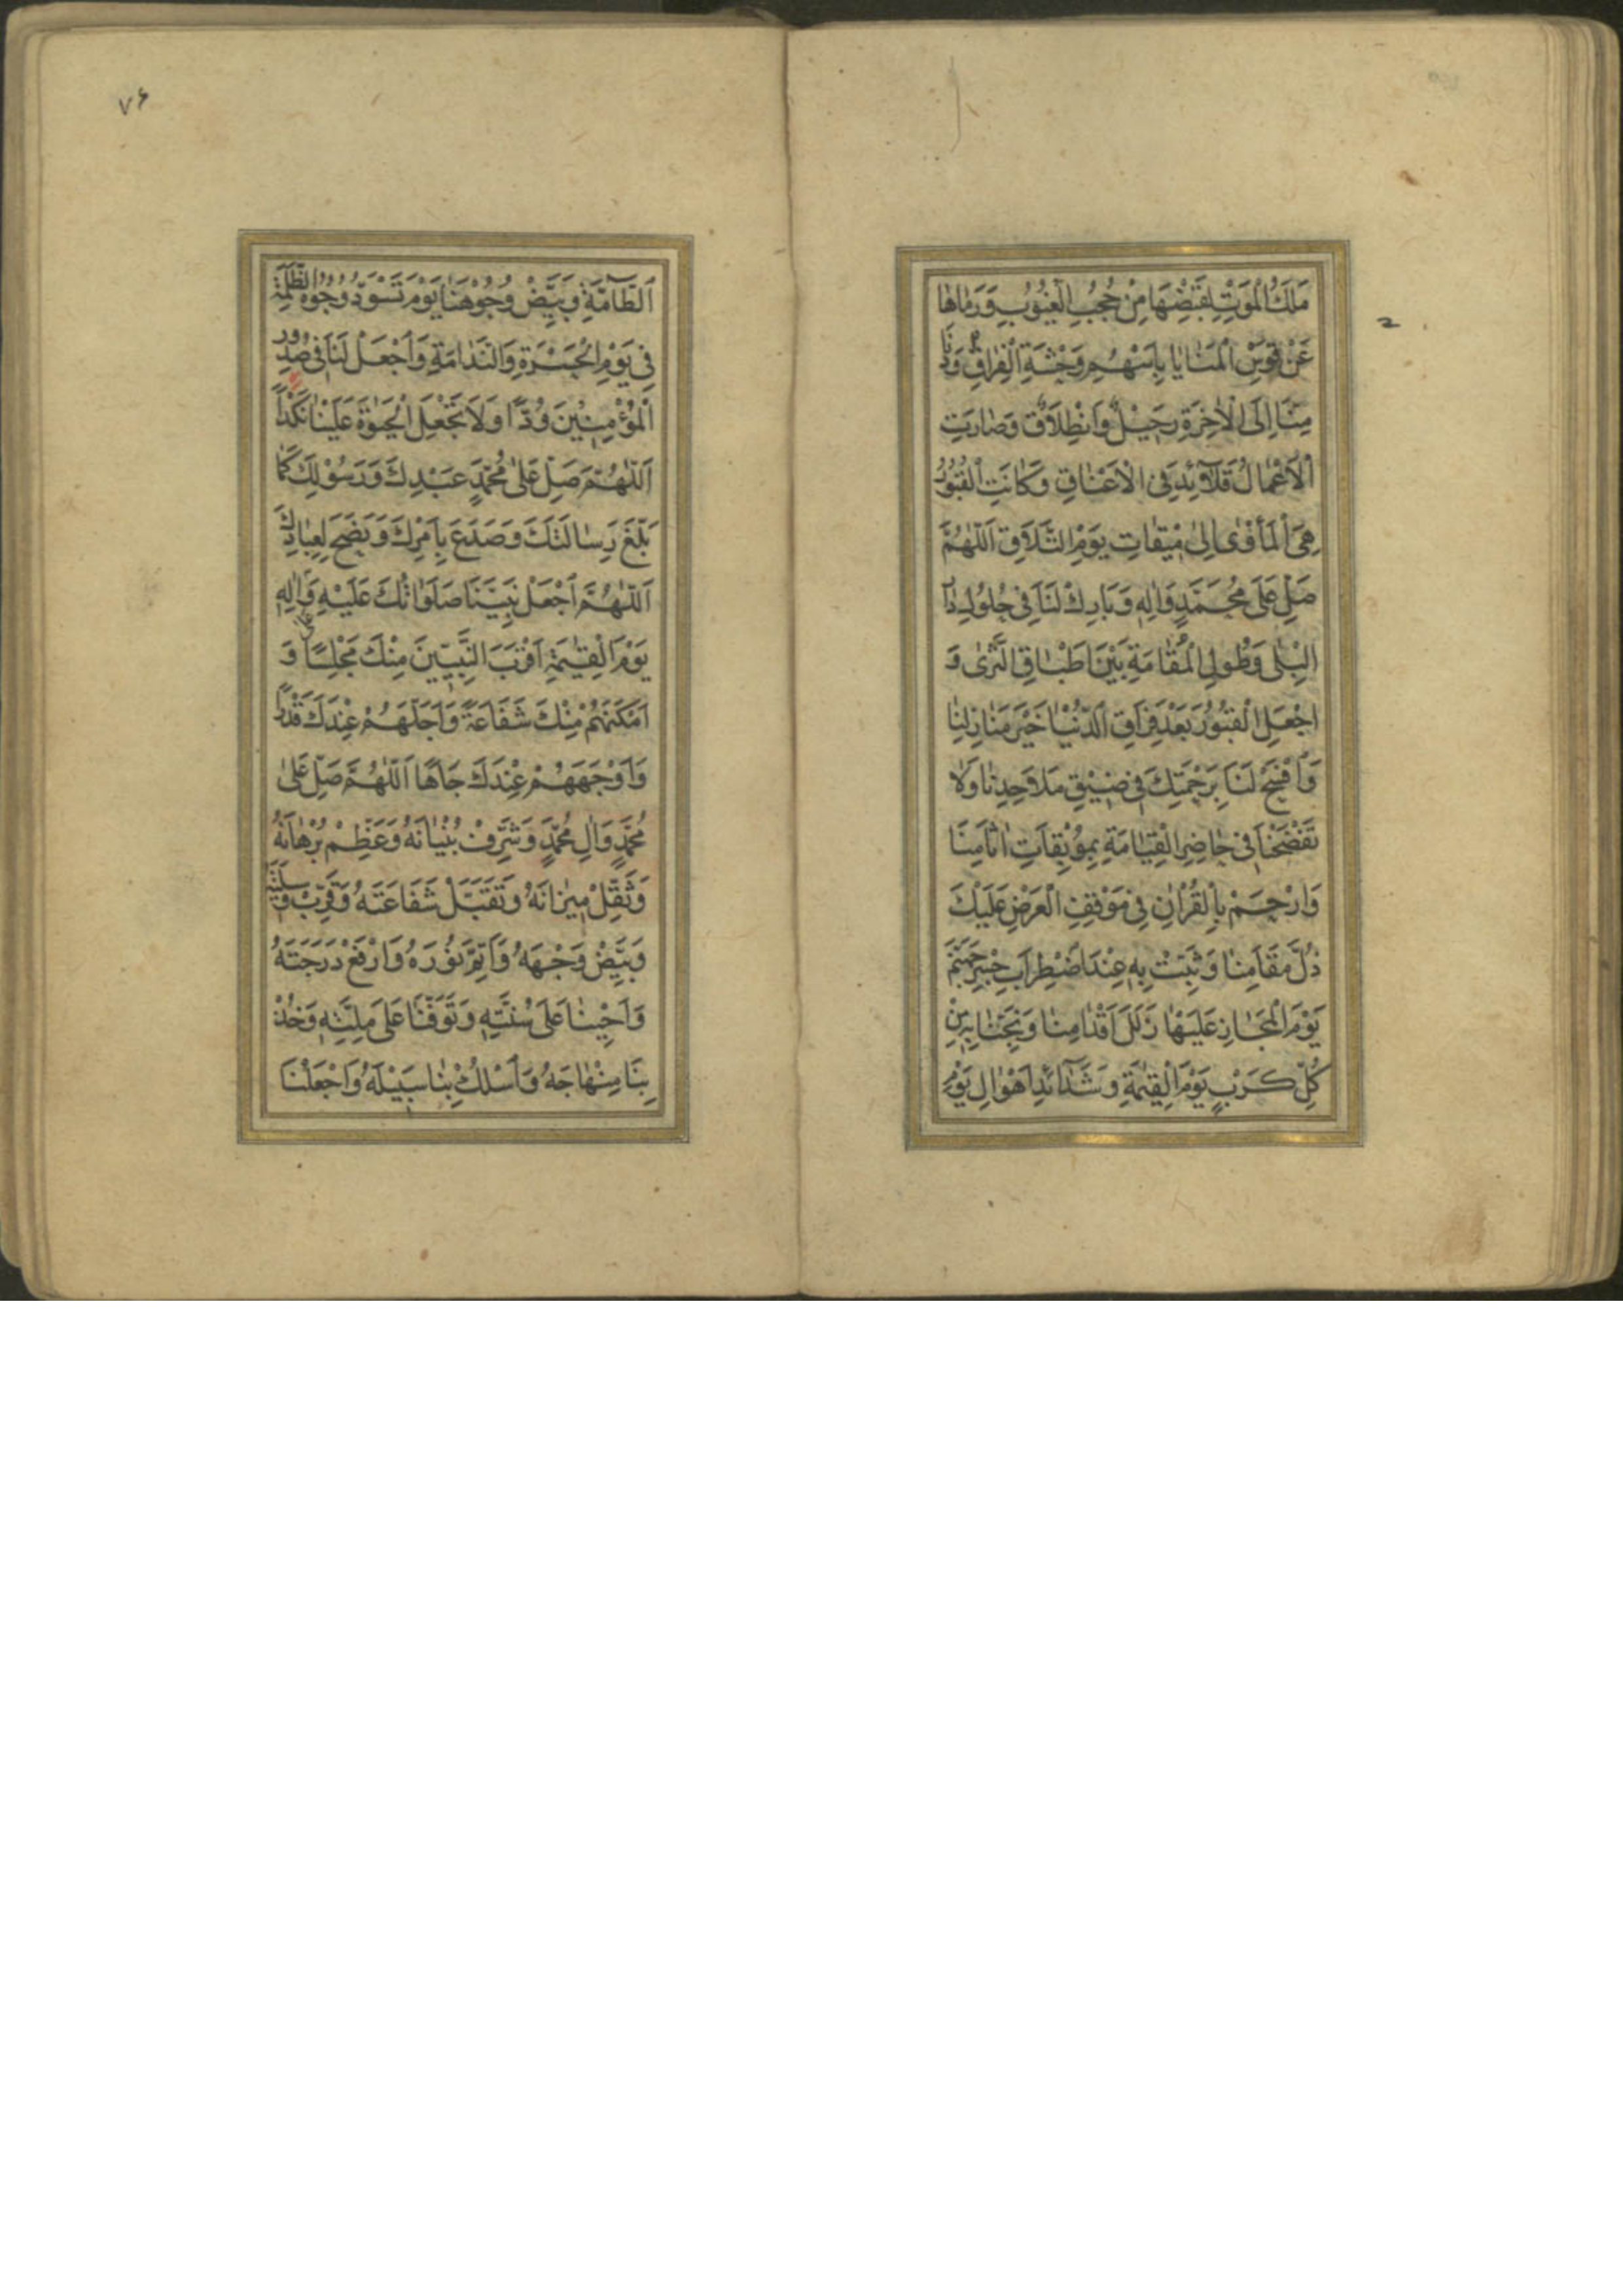 مَلَكُ الْمَوْتِ لِقَبْضِهَا مِنْ حُجُبِ الْغُيُوبِ وَرَمَاهَا
عَنْ قَوْسِ الْمَنَايَا بِأَسْهُمِ وَحْشَةِ الْفِرَاقِ وَدَنَا
مِنَّا إِلَى الْآخِرَةِ رَحِيلٌ وَانْطِلَاقٌ وَصَارَتِ
الْأَعْمَالُ قَلَائِدَ فِي الْأَعْنَاقِ وَكَانَتِ الْقُبُورُ
هِيَ الْمَأْوَى إِلَى مِيقَاتِ يَوْمِ التَّلَاقِ اَللّٰهُمَّ
صَلِّ عَلَى مُحَمَّدٍ وَآلِهِ وَبَارِكْ لَنَا فِي حُلُولِ دَارِ
الْبِلَى وَطُولِ الْمُقَامَةِ بَيْنَ اَطْبَاقِ الثَّرَى وَ
اجْعَلِ الْقُبُورَ بَعْدَ فِرَاقِ الدُّنْيَا خَيْرَ مَنَازِلِنَا
وَافْسَحْ لَنَا بِرَحْمَتِكَ فِي ضِيقِ مَلَاحِدِنَا وَلَا
تَفْضَحْنَا فِي حَاضِرِ الْقِيَامَةِ بِمُوبِقَاتِ اٰثَامِنَا
وَارْحَمْ بِالْقُرْاٰنِ فِي مَوْقِفِ الْعَرْضِ عَلَيْكَ
ذُلَّ مَقَامِنَا وَثَبِّتْ بِهِ عِنْدَ اضْطِرَابِ جِسْرِ جَهَنَّمَ
يَوْمَ الْمَجَازِ عَلَيْهَا زَلَلَ اَقْدَامِنَا وَنَجِّنَا بِهِ مِنْ
كُلِّ كَرْبٍ يَوْمَ الْقِيٰمَةِ وَشَدَآئِدِ اَهْوَالِ يَوْمِ
۷۶
اَلطَّآمَّةِ وَبَيِّضْ وُجُوهَنَا يَوْمَ تَسْوَدُّ وُجُوهُ الظَّلَمَةِ
فِي يَوْمِ الْحَسْرَةِ وَالنَّدَامَةِ وَاجْعَلْ لَنَا فِي صُدُورِ
الْمُؤْمِنِينَ وُدًّا وَلَا تَجْعَلِ الْحَيٰوةَ عَلَيْنَا نَكَدًا
اَللّٰهُمَّ صَلِّ عَلٰى مُحَمَّدٍ عَبْدِكَ وَرَسُولِكَ كَمَا
بَلَّغَ رِسَالَتَكَ وَصَدَعَ بِاَمْرِكَ وَنَصَحَ لِعِبَادِكَ
اَللّٰهُمَّ اجْعَلْ نَبِيَّنَا صَلَوَاتُكَ عَلَيْهِ وَاٰلِهِ
يَوْمَ الْقِيٰمَةِ اَقْرَبَ النَّبِيِّينَ مِنْكَ مَجْلِسًا وَ
اَمْكَنَهُمْ مِنْكَ شَفَاعَةً وَاَجَلَّهُمْ عِنْدَكَ قَدْرًا
وَاَوْجَهَهُمْ عِنْدَكَ جَاهًا اَللّٰهُمَّ صَلِّ عَلٰى
مُحَمَّدٍ وَاٰلِ مُحَمَّدٍ وَشَرِّفْ بُنْيَانَهُ وَعَظِّمْ بُرْهَانَهُ
وَثَقِّلْ مِيزَانَهُ وَتَقَبَّلْ شَفَاعَتَهُ وَقَرِّبْ وَسِيلَتَهُ
وَبَيِّضْ وَجْهَهُ وَاَتِمَّ نُورَهُ وَارْفَعْ دَرَجَتَهُ
وَاَحْيِنَا عَلَى سُنَّتِهِ وَتَوَفَّنَا عَلَى مِلَّتِهِ وَخُذْ
بِنَا مِنْهَاجَهُ وَاسْلُكْ بِنَا سَبِيلَهُ وَاجْعَلْنَا